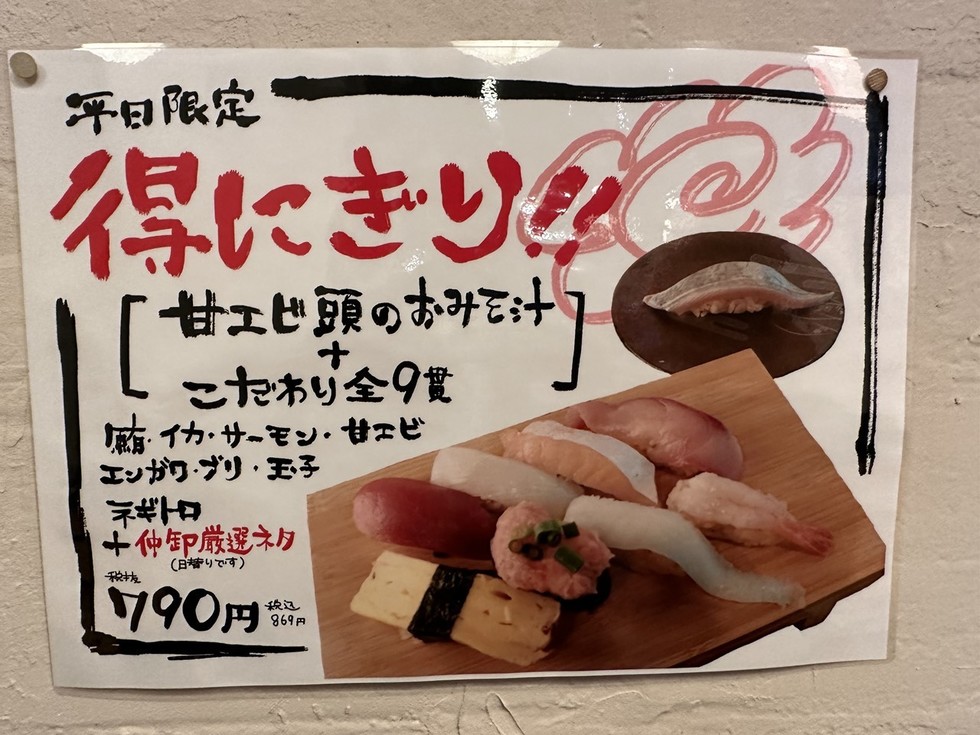 平日限定
得にぎり!!
[甘エビ頭のおみそ汁
+
こだわり全9貫]
鮪・イカ・サーモン・甘エビ
エンガワ・ブリ・玉子
ネギトロ
+仲卸厳選ネタ
(日替りです)
税抜
790円
税込
869円